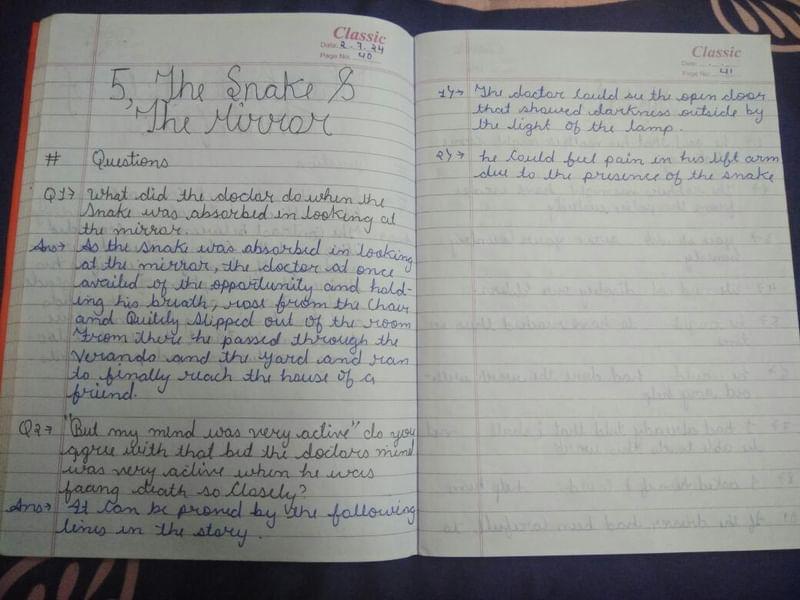 Classic
Date: 2.7.24
Page No. 40
5, The Snake &
The Mirror
# Questions
Q1) What did the doctor do when the
snake was absorbed in looking at
the mirror.
Ans) As the snake was absorbed in looking
at the mirror, the doctor at once
availed of the opportunity and hold-
ing his breath, rose from the chair
and Quitely slipped out of the room
From there he passed through the
Veranda and the yard and ran
to finally reach the house of a
friend.
Q2) "But my mind was very active" do you
agree with that but the doctors mind
was very active when he was
facing death so closely?
Ans) It can be proned by the following
lines in the story.
Classic
Date:
Page No. 41
1) The doctor could se the open door
that showed darkness outside by
the light of the lamp.
2) he could feel pain in his lift arm
due to the presence of the snake